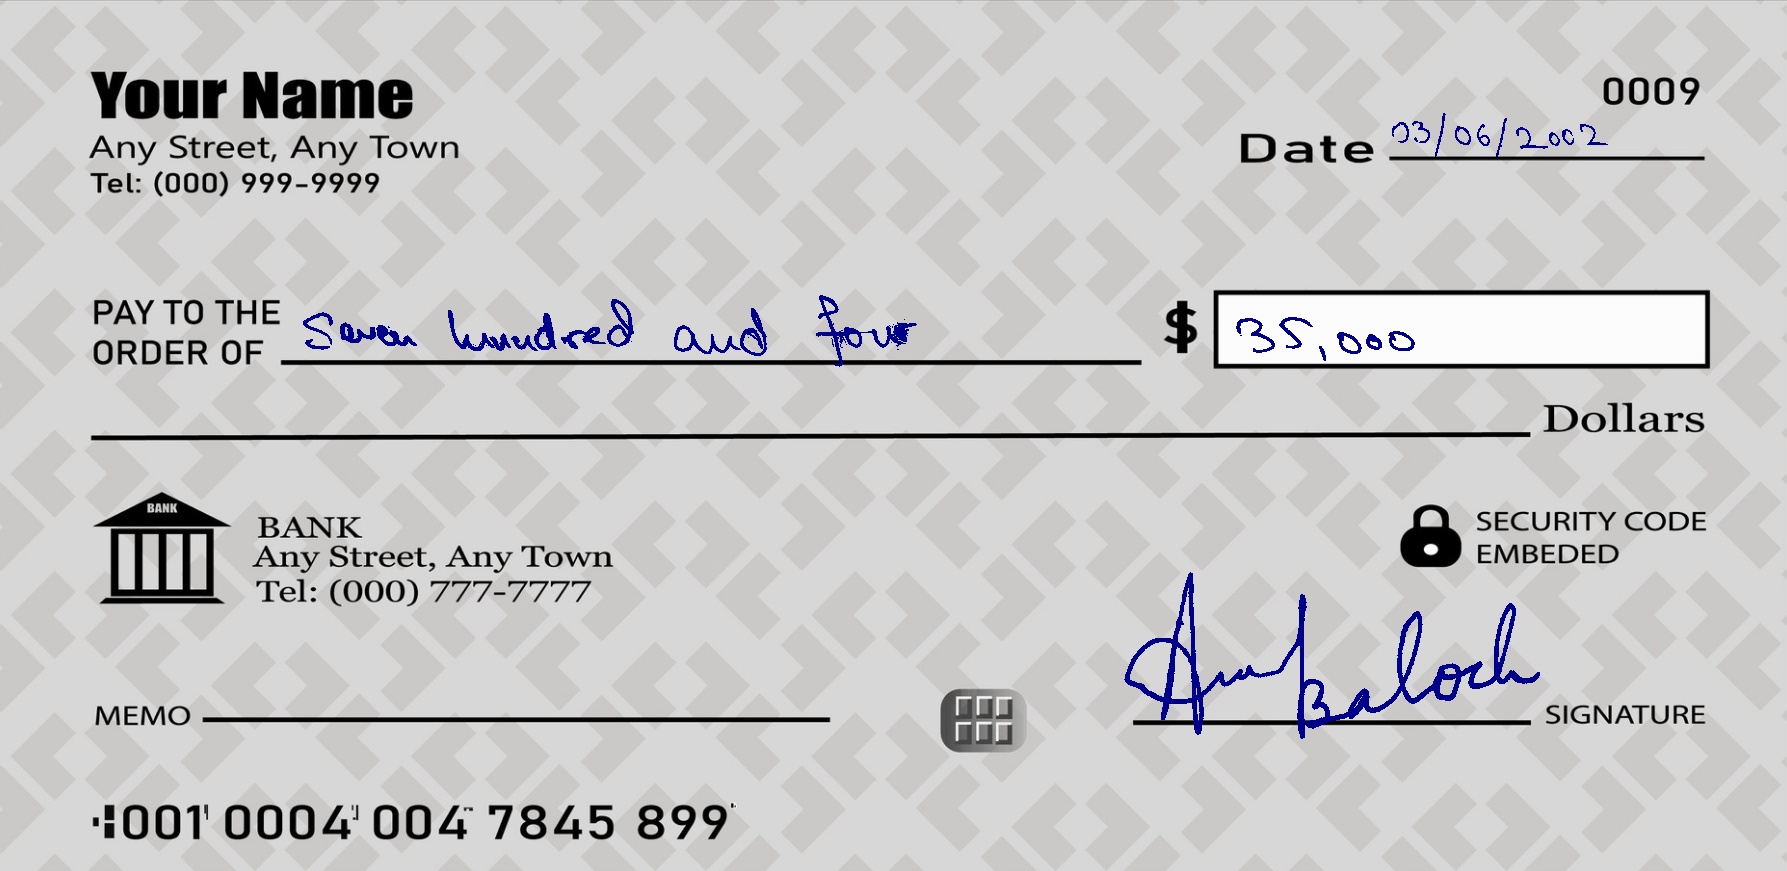 Your Name
0009
Any Street, Any Town
Date 03/06/2002
Tel: (000) 999-9999
PAY TO THE
ORDER OF Seven hundred and four $ 35,000
Dollars
BANK
BANK
Any Street, Any Town
Tel: (000) 777-7777
SECURITY CODE
EMBEDED
MEMO
Baloch SIGNATURE
001 0004 004 7845 899